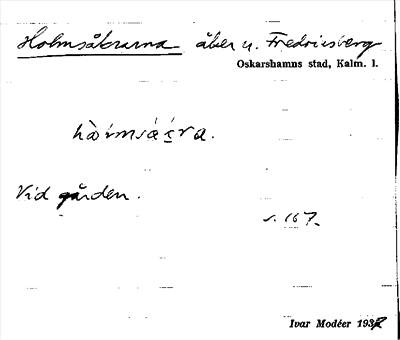 Holmsåkrarna åker u. Fredriksberg
Oskarshamns stad, Kalm. l.
Vid gården.
s. 167.
Ivar Modéer 1937